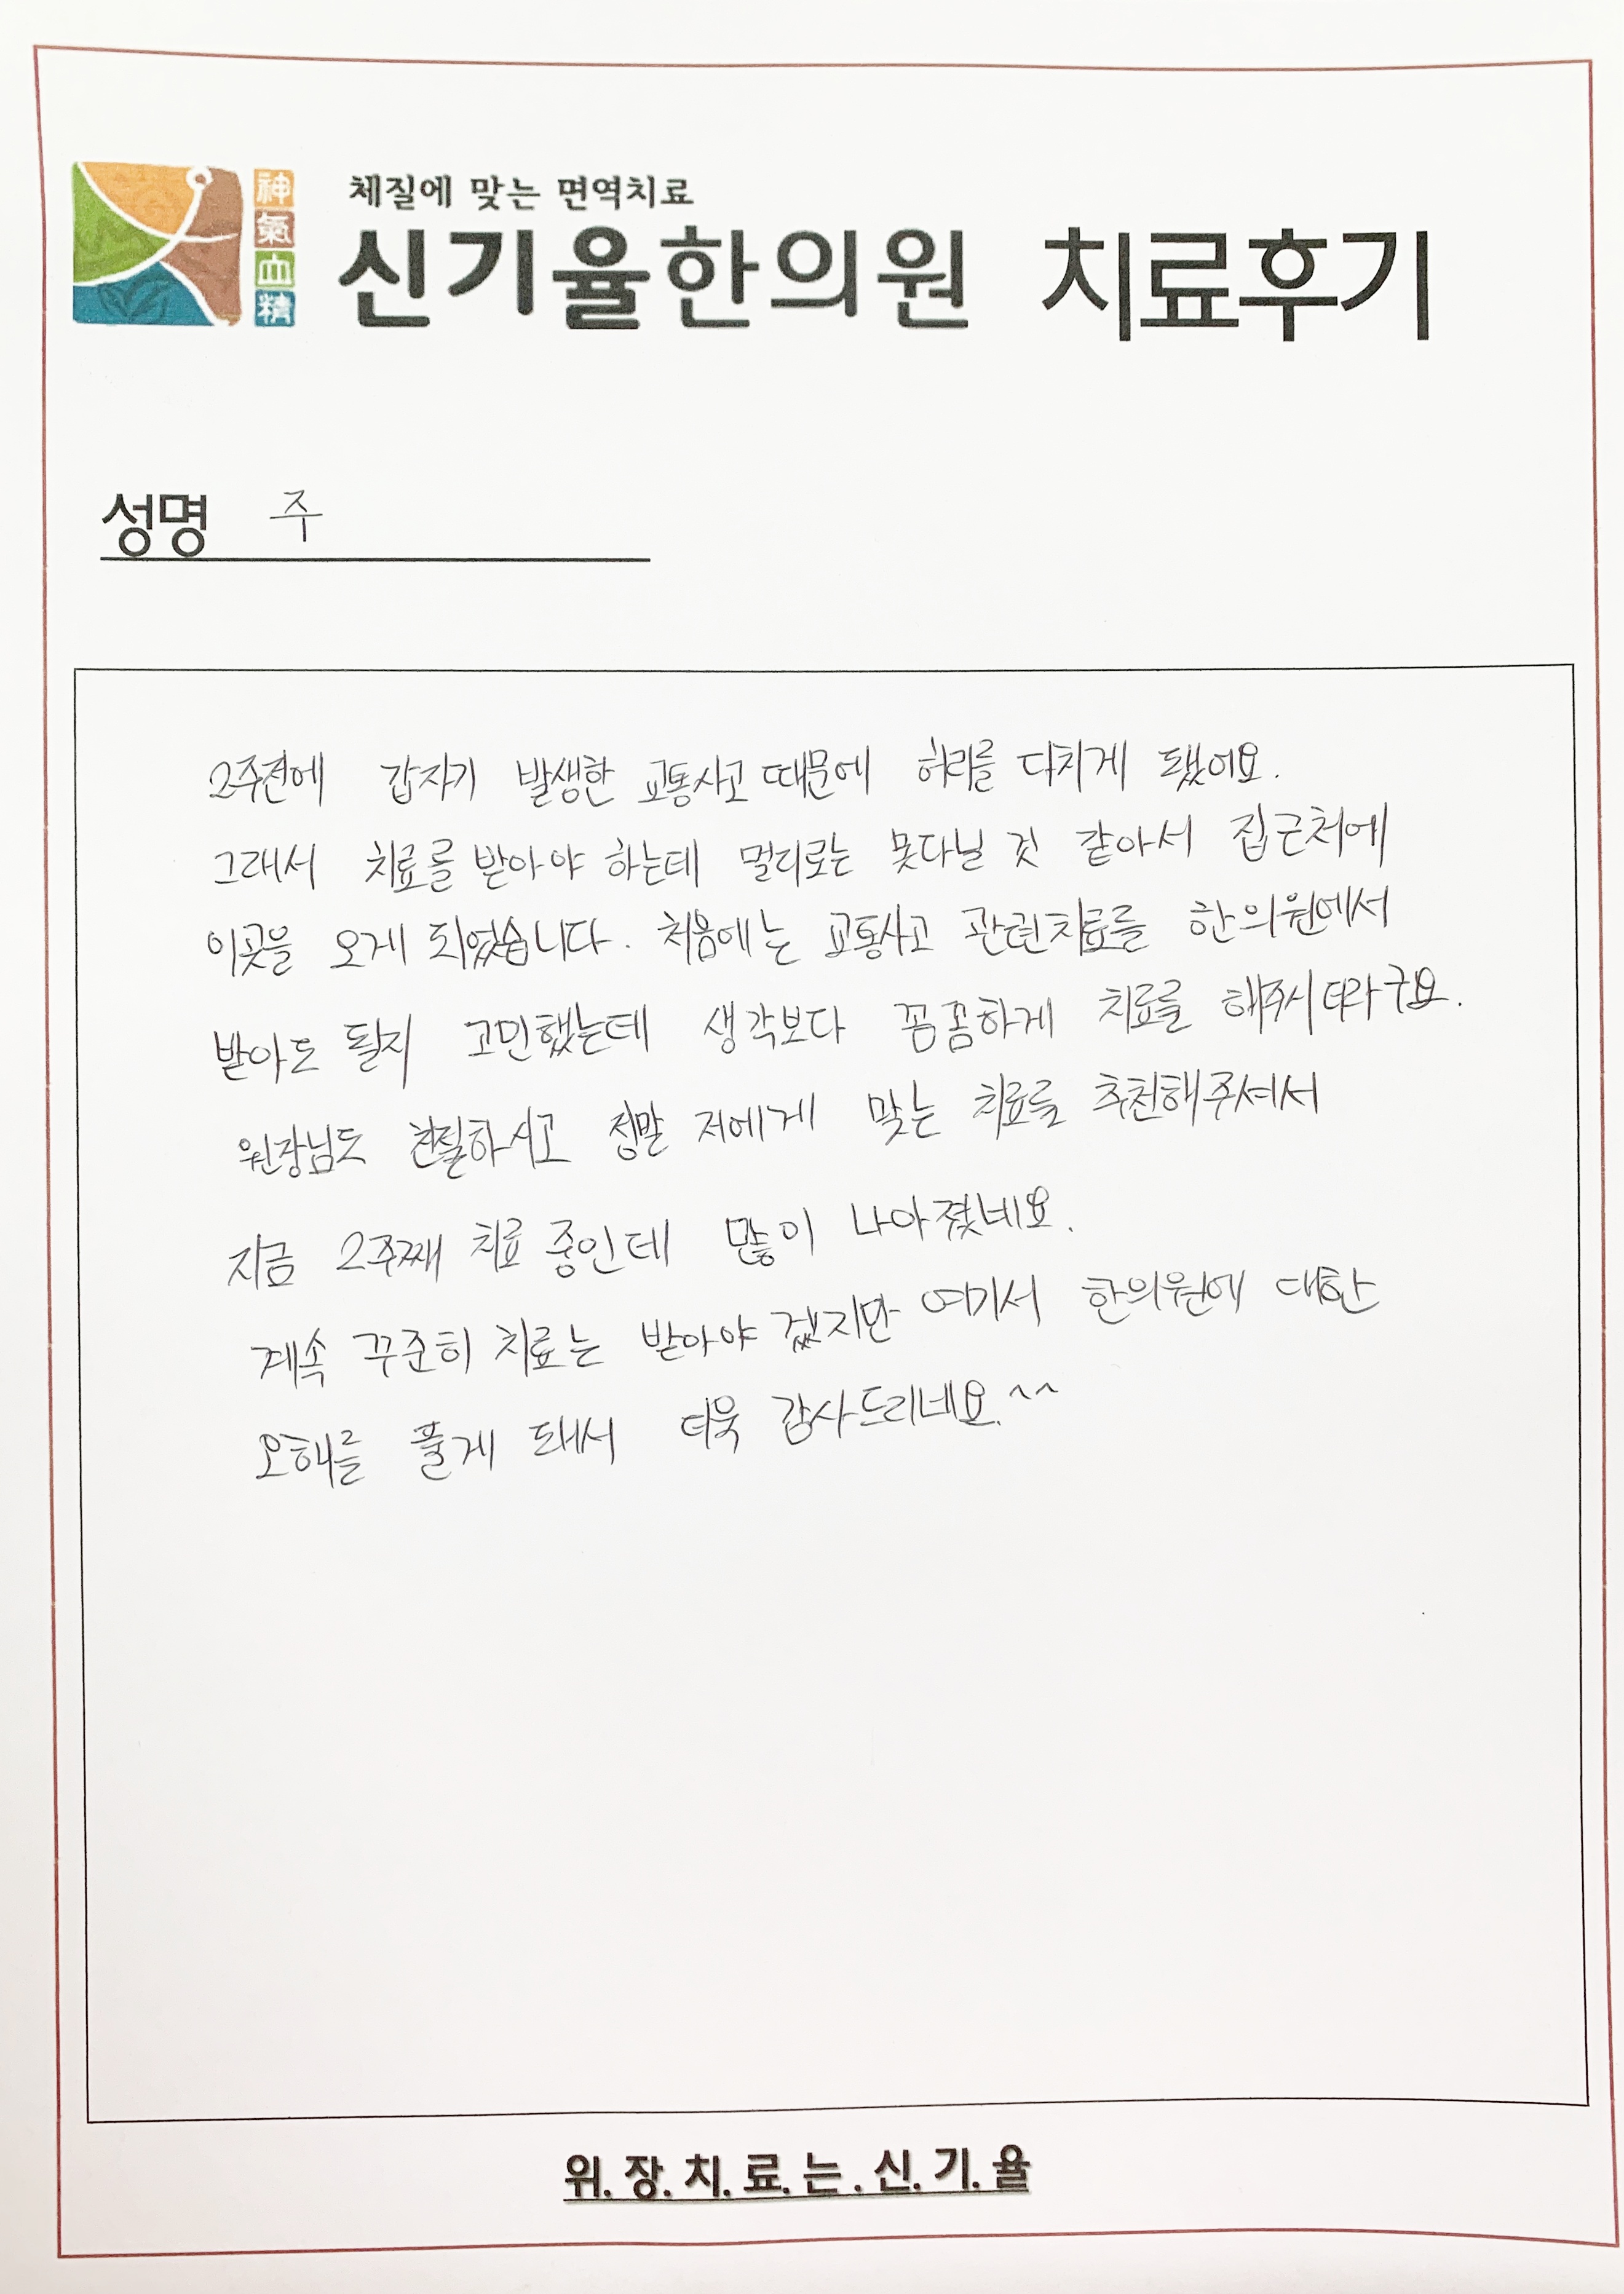 神
氣
血
精
체질에 맞는 면역치료
신기율한의원 치료후기
성명 주
2주전에 갑자기 발생한 교통사고 때문에 허리를 다치게 됐어요.
그래서 치료를 받아야 하는데 멀리로는 못다닐 것 같아서 집근처에
이곳을 오게 되었습니다. 처음에는 교통사고 관련치료를 한의원에서
받아도 될지 고민했는데 생각보다 꼼꼼하게 치료를 해주시더라구요.
원장님도 친절하시고 정말 저에게 맞는 치료를 추천해주셔서
지금 2주째 치료 중인데 많이 나아졌네요.
계속 꾸준히 치료는 받아야겠지만 여기서 한의원에 대한
오해를 풀게 돼서 더욱 감사드리네요.^^
위.장.치.료.는.신.기.율